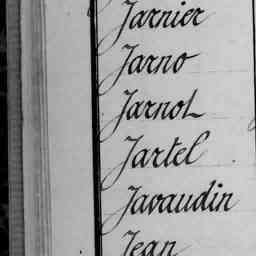 Jarnier
Jarno
Jarnot
Jartel
Javaudin
Jean